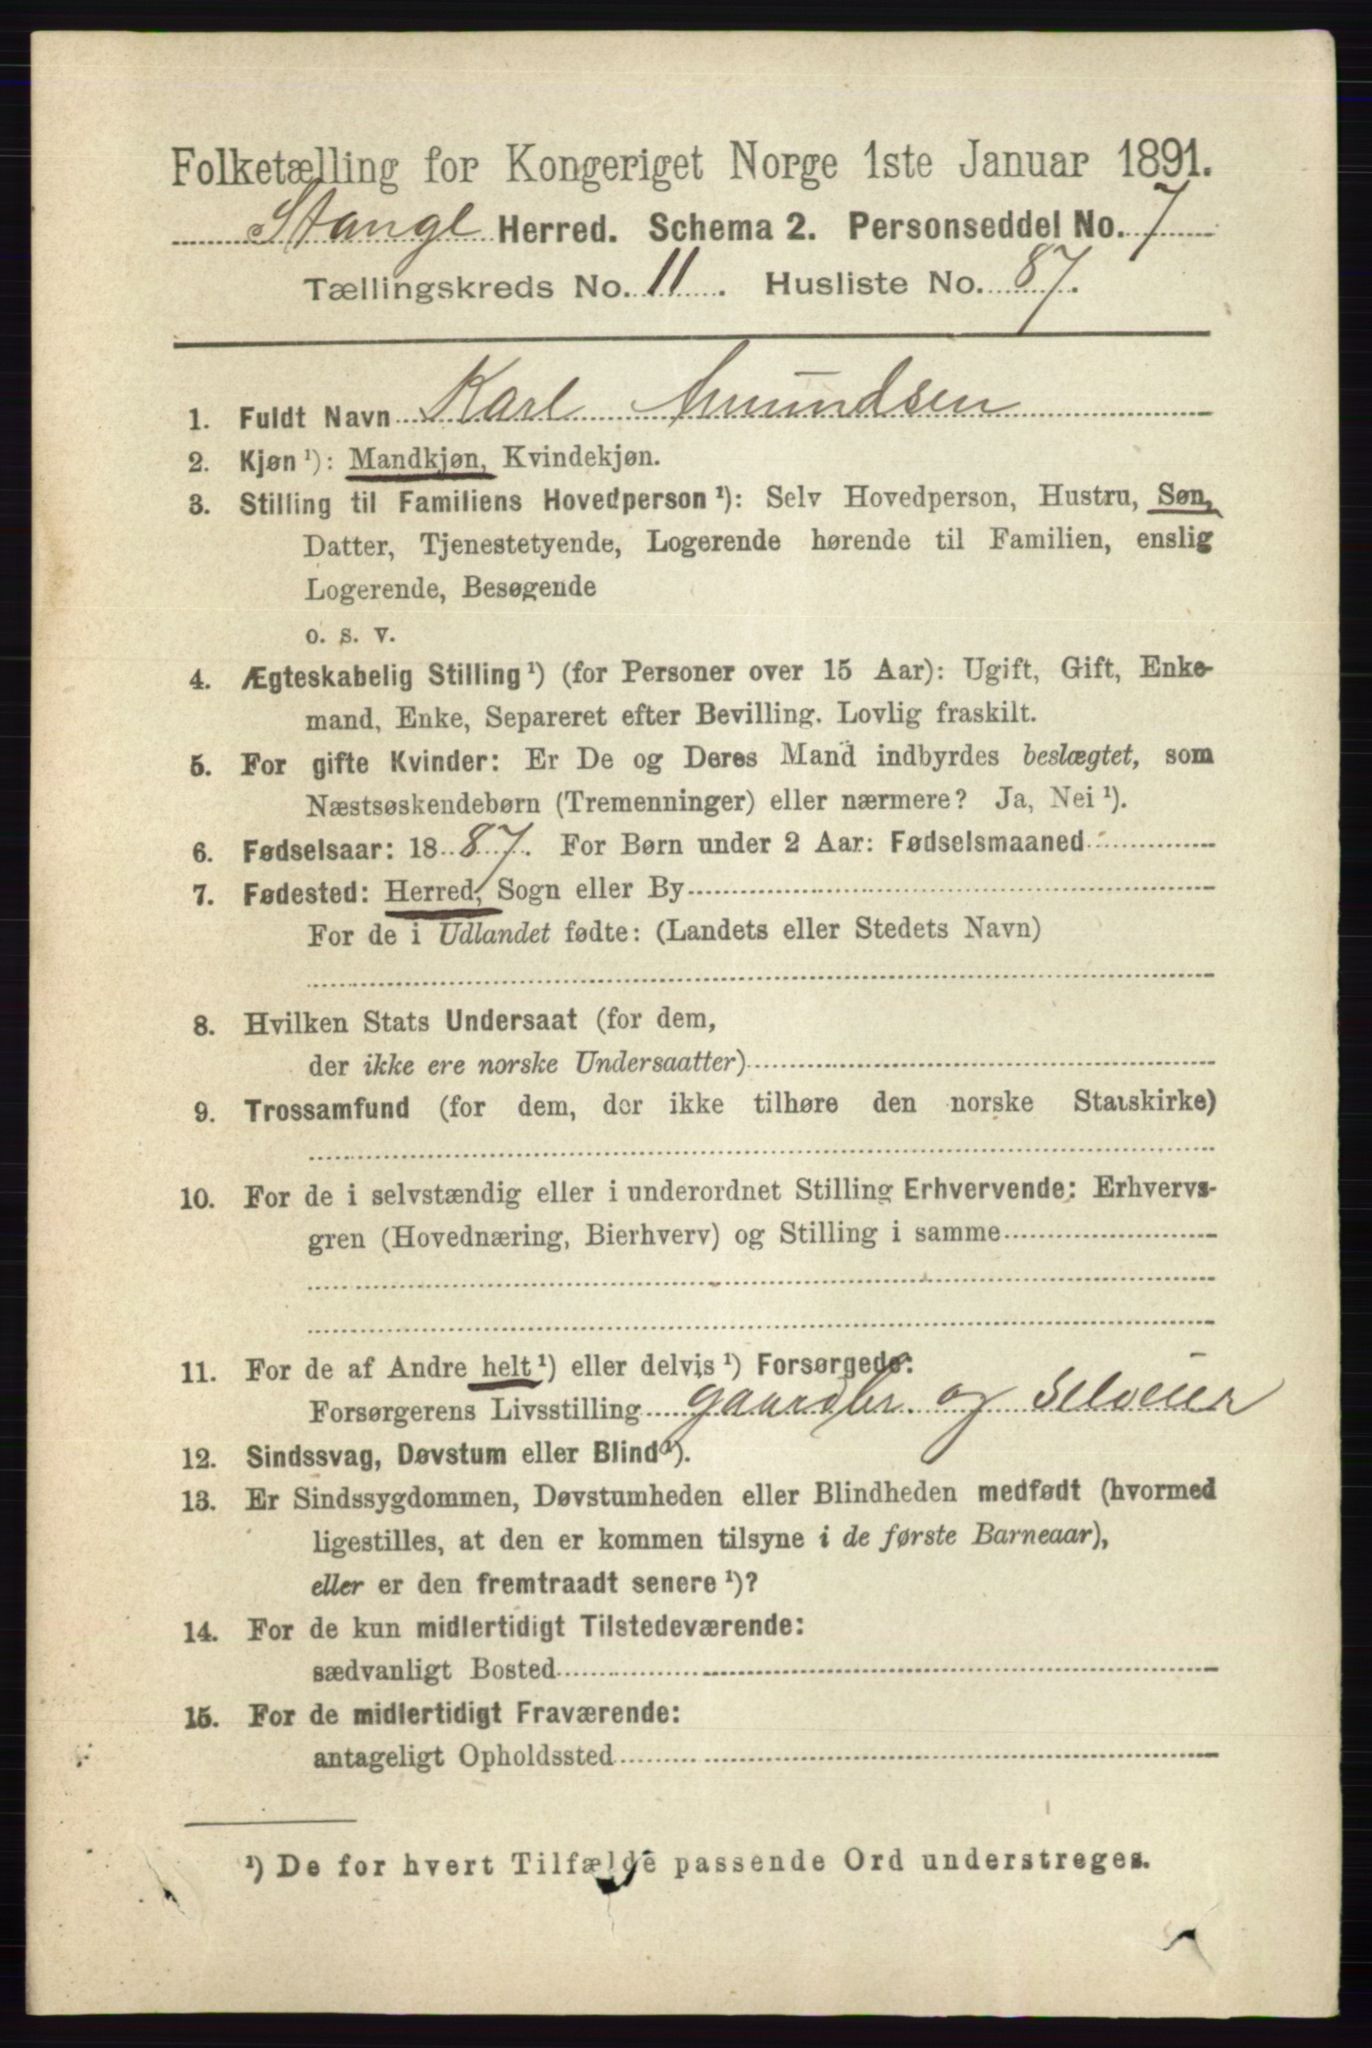 Folketælling for Kongeriget Norge 1ste Januar 1891.
Stange Herred. Schema 2. Personseddel No. 7
Tællingskreds No. 11. Husliste No. 87.
1. Fuldt Navn Karl Amundsen
2. Kjøn ¹): Mandkjøn, Kvindekjøn.
3. Stilling til Familiens Hovedperson ¹): Selv Hovedperson, Hustru, Søn,
Datter, Tjenestetyende, Logerende hørende til Familien, enslig
Logerende, Besøgende
o. s. v.
4. Ægteskabelig Stilling ¹) (for Personer over 15 Aar): Ugift, Gift, Enke-
mand, Enke, Separeret efter Bevilling. Lovlig fraskilt.
5. For gifte Kvinder: Er De og Deres Mand indbyrdes beslægtet, som
Næstsøskendebørn (Tremenninger) eller nærmere? Ja, Nei ¹).
6. Fødselsaar: 1887. For Børn under 2 Aar: Fødselsmaaned
7. Fødested: Herred, Sogn eller By
For de i Udlandet fødte: (Landets eller Stedets Navn)
8. Hvilken Stats Undersaat (for dem,
der ikke ere norske Undersaatter)
9. Trossamfund (for dem, der ikke tilhøre den norske Statskirke)
10. For de i selvstændig eller i underordnet Stilling Erhvervende: Erhvervs-
gren (Hovednæring, Bierhverv) og Stilling i samme
11. For de af Andre helt ¹) eller delvis ¹) Forsørgede:
Forsørgerens Livsstilling gaardbr. og Selveier
12. Sindssvag, Døvstum eller Blind ¹).
13. Er Sindssygdommen, Døvstumheden eller Blindheden medfødt (hvormed
ligestilles, at den er kommen tilsyne i de første Barneaar),
eller er den fremtraadt senere ¹)?
14. For de kun midlertidigt Tilstedeværende:
sædvanligt Bosted
15. For de midlertidigt Fraværende:
antageligt Opholdssted
¹) De for hvert Tilfælde passende Ord understreges.